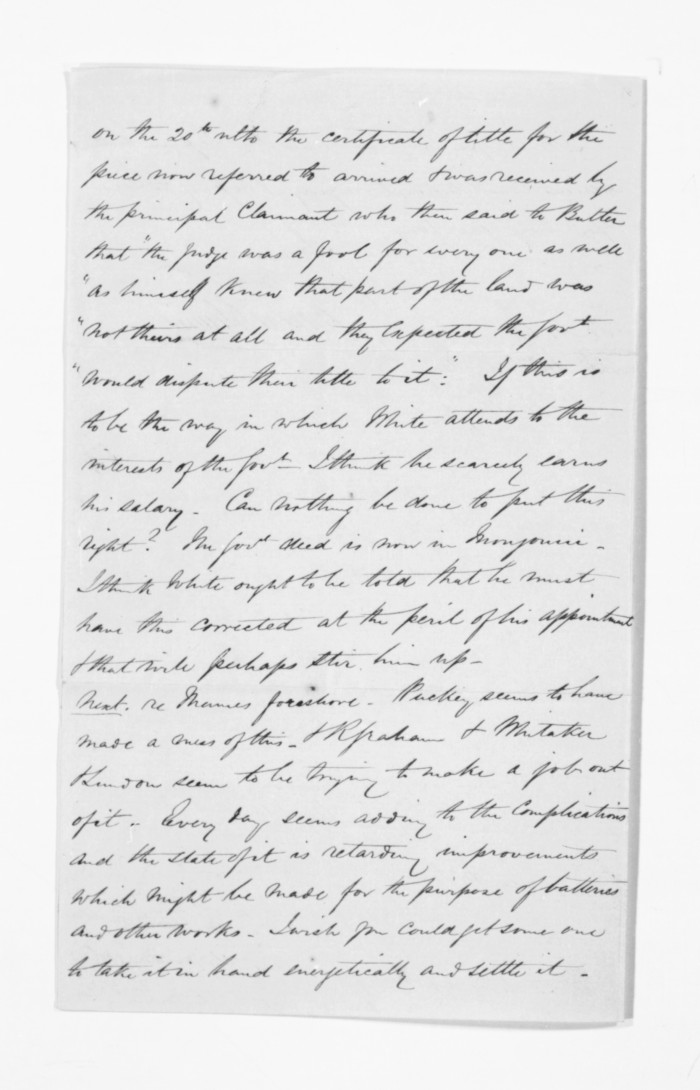 on the 20th ulto the certificate of title for the
piece now referred to arrived & was received by
the principal Claimant who then said to Butler
that "the Judge was a fool for every one as well
"as himself knew that part of the land was
"not theirs at all and they expected the Govt
"would dispute their title to it": If this is
to be the way in which White attends to the
interests of the Govt - I think he scarcely earns
his salary - Can nothing be done to put this
right? The Govt deed is now in Mongonui -
I think White ought to be told that he must
have this corrected at the peril of his appointment
& that will perhaps stir him up -
next. re Thames foreshore - Puckey seems to have
made a mess of this - & R Graham & Whitaker
& Lundon seem to be trying to make a job out
of it - Every day seems adding to the complications
and the state of it is retarding improvements
which might be made for the purpose of batteries
and other works - I wish you could get some one
to take it in hand energetically and settle it -